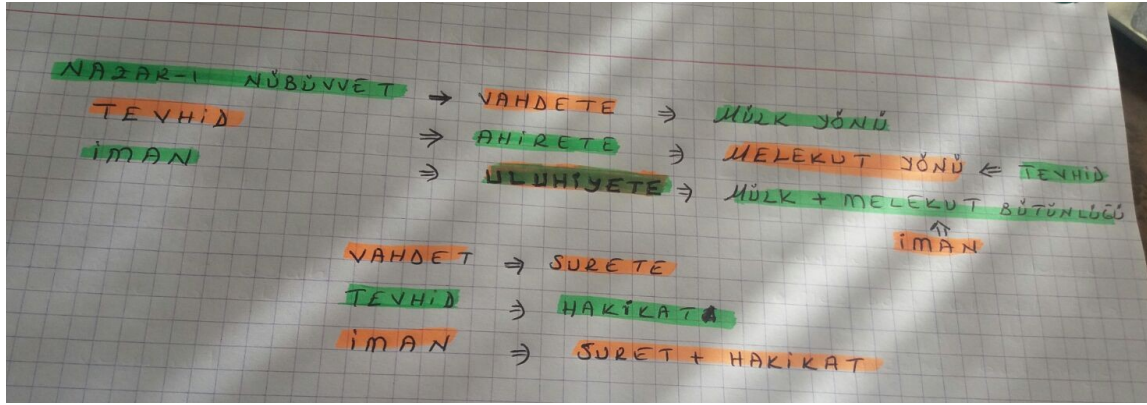 NAZAR-I NÜBÜVVET → VAHDETE ⇒ MÜLK YÖNÜ
TEVHİD ⇒ AHİRETE ⇒ MELEKUT YÖNÜ ⇐ TEVHİD
İMAN ⇒ ULUHİYETE ⇒ MÜLK + MELEKUT BÜTÜNLÜĞÜ
⇑
İMAN
VAHDET ⇒ SURETE
TEVHİD ⇒ HAKİKATA
İMAN ⇒ SURET + HAKİKAT